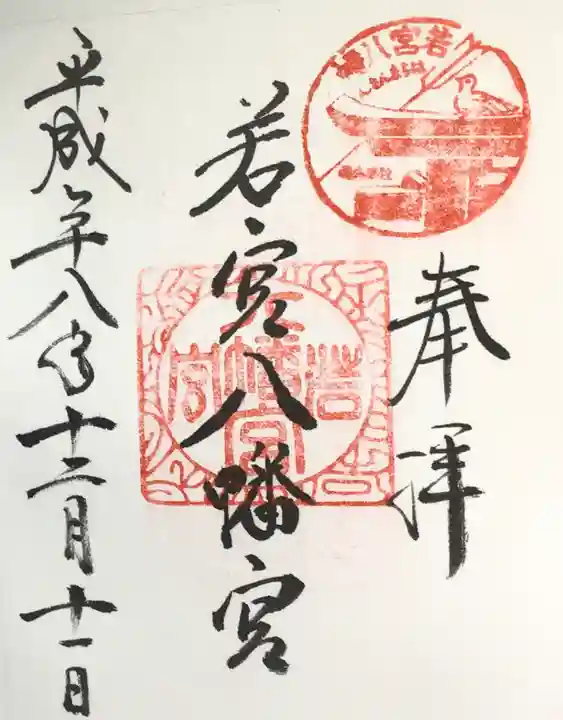 若宮八幡
奉拝
若宮八幡宮
若宮
八幡宮
平成二十八年十二月十一日